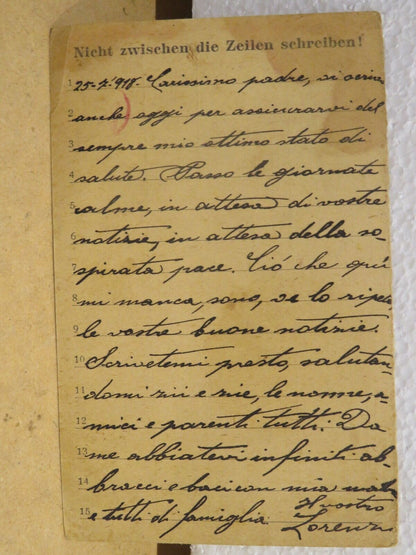 Nicht zwischen die Zeilen schreiben!
1 25-7-918. Carissimo padre, vi scrivo
2 anche oggi per assicurarvi del
3 sempre mio ottimo stato di
4 salute. Passo le giornate
5 calme, in attesa di vostre
6 notizie, in attesa della so-
7 spirata pace. Ciò che quì
8 mi manca, sono, ve lo ripeto
9 le vostre buone notizie.
10 Scrivetemi presto, salutan-
11 domi zii e zie, le nonne, a-
12 mici e parenti tutti. Da
13 me abbiatevi infiniti ab-
14 bracci e baci con mia
15 e tutti di famiglia. Il vostro
Lorenzo